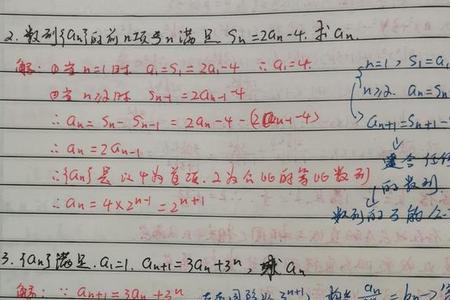 2. 数列{an}的前n项和Sn满足 Sn=2an-4. 求an.
解: ①当n=1时 a1=S1=2a1-4 ∴a1=4.
②当n≥2时 Sn-1=2an-1-4
∴an=Sn-Sn-1=2an-4-(2an-1-4)
∴an=2an-1
∴{an}是以4为首项.2为公比的等比数列
∴an=4×2^n-1=2^n+1
n=1, S1=a1
n≥2. an=Sn
an+1=Sn+1-
↓
适合任何
的数列
↓
数列的万能公
3. {an}满足.a1=1. an+1=3an+3^n, 求an
解: ∵an+1=3an+3^n 3^n+1,